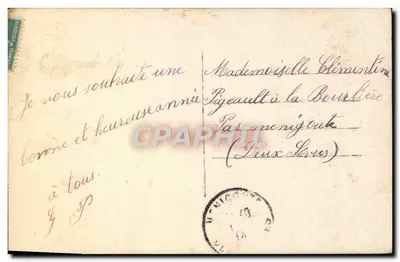 Je vous souhaite une
bonne et heureuse année
à tous.
G P
Mademoiselle Clémentine
Pigeault à la Bourlière
Par menigoute
(Deux Sèvres)
CPAPHIL
MENIGOUTE